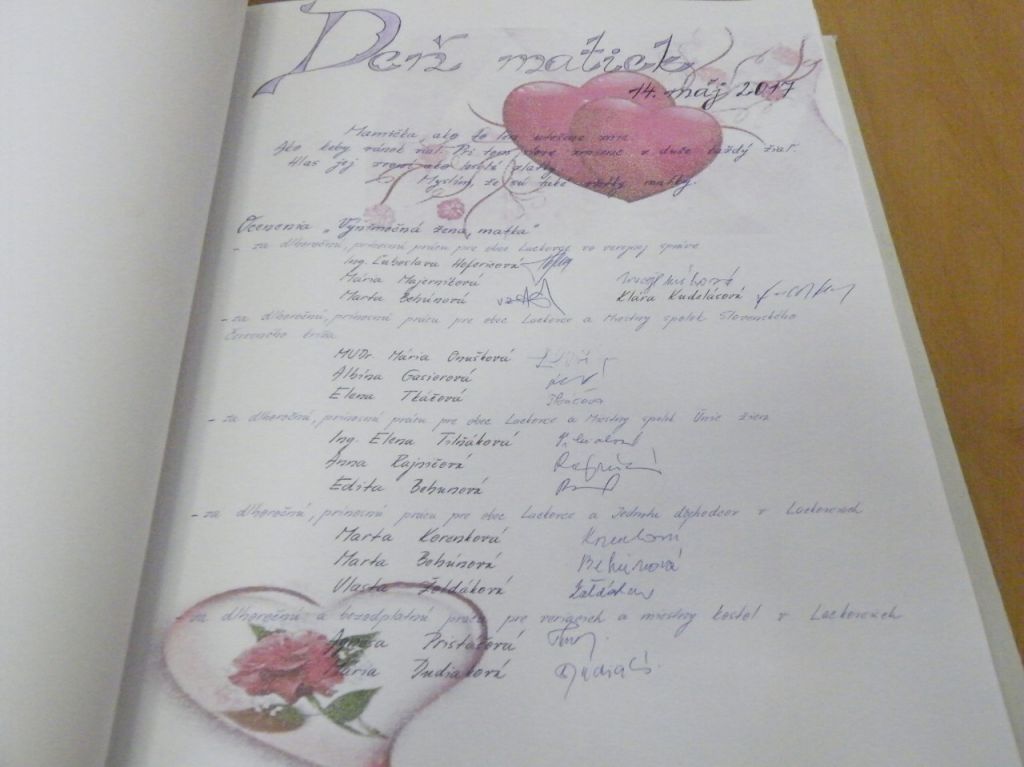 Deň matiek
14. máj 2017
Mamička, ako to len utešene znie.
Ako keby vánok vial. Pri tom slove zmizne v duši každý žiaľ.
Hlas jej zvoní ako
Myslím, že sú také všetky mamky.
Ocenenia „Výnimočná žena, matka"
- za dlhoročnú, prínosnú prácu pre obec Lackovce vo verejnej správe
Ing. Ľuboslava Hofericová
Mária Majerníčková
Marta Behúnová Klára Kudelásová
- za dlhoročnú, prínosnú prácu pre obec Lackovce a Miestny spolok Slovenského
Červeného kríža
MUDr. Mária Onušková
Albína Gasiorová
Elena Tkáčová Tkáčová
- za dlhoročnú, prínosnú prácu pre obec Lackovce a Miestny spolok Únie žien
Ing. Elena Tilňáková
Anna Rajničová
Edita Behunová
- za dlhoročnú, prínosnú prácu pre obec Lackovce a Jednotu dôchodcov v Lackovciach
Marta Korenková
Marta Behúnová Behúnová
Vlasta Žoldáková
- za dlhoročnú a bezodplatnú prácu pre veriacich a miestny kostol v Lackovciach
Pristačová
Mária Dudiaková